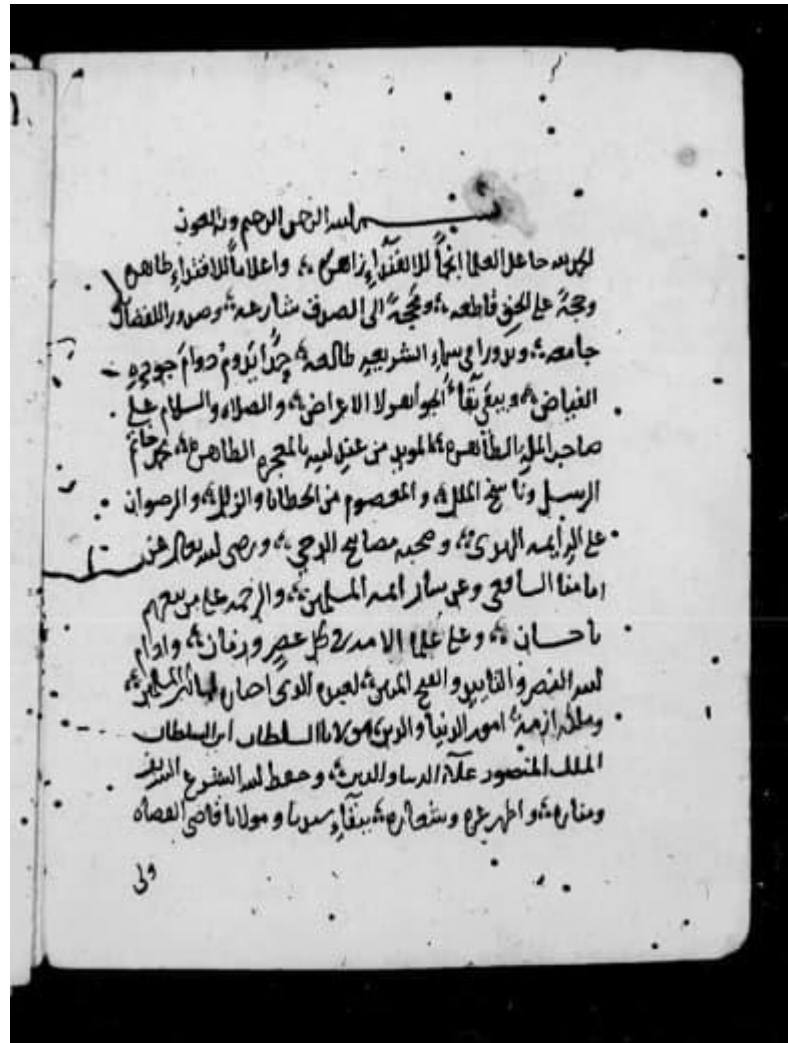 بسم الله الرحمن الرحيم وبه العون
الحمد لله جاعل العلما انجماً للاقتداءِ زاهرة واعلاماً للاقتداءِ ظاهره
وحجةً على الحق قاطعه ومحجةً الى الصدق شارعه وصدورا للفضائل
جامعه وبدورا فى سماءِ الشريعهِ طالعه حمدًا يدومُ دوامَ جودهِ
الفياض ويبقى بقاءَ الجواهر لا الاعراض والصلاه والسلام على
صاحب الملة الطاهره المويد من عند الله بالمعجزه الظاهره محمد خاتم
الرسل وناسخ الملل والمعصوم من الخطايا والزلل والرضوان
على اله ايمه الهدى وصحبه مصابيح الدجى ورضى الله تعالى عن
امامنا الشافعى وعن سائر ائمه المسلمين والرحمه على من تبعهم
باحسان وعلى علماء الامه فى كل عصر وزمان وادام
الله النصر والتاييد والفتح المبين لعبده الذى اختاره للمسلمين
وملكه ازمةَ امور الدنيا والدين مولانا السلطان ابن السلطان
الملك المنصور علاء الدنيا والدين وحفظ الله الشرع الشريف
ومناره واظهر عزه وشعاره ببقاءِ سيدنا ومولانا قاضى القضاه
ولى